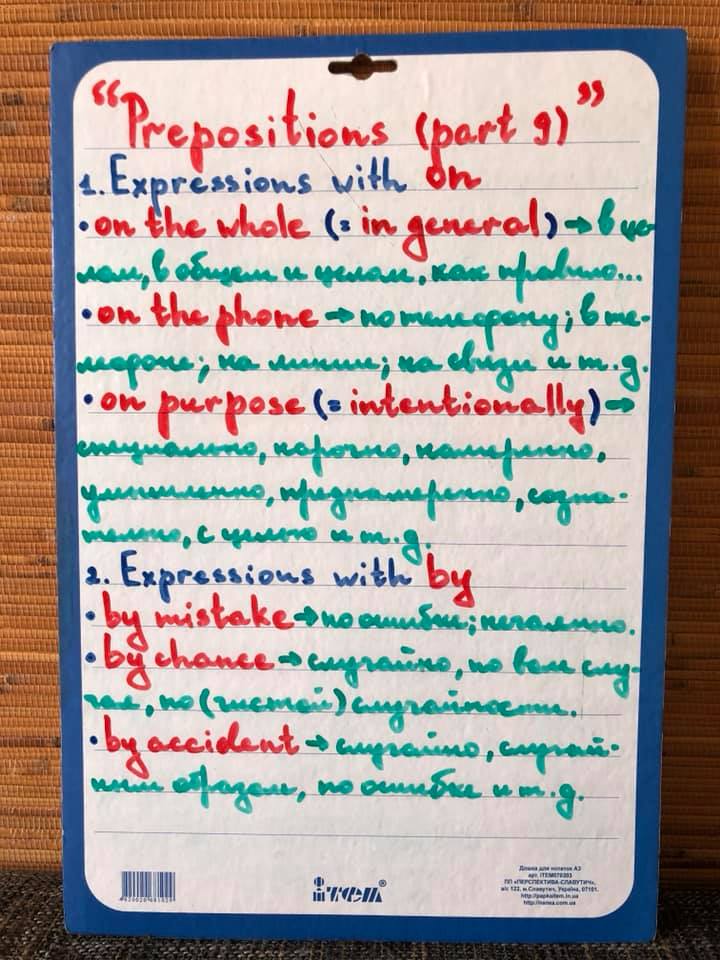 “Prepositions (part 9)”
1. Expressions with on
• on the whole (= in general) → в це-
лом, в общем и целом, как правило...
• on the phone → по телефону; в те-
лефоне; на линии; на связи и т.д.
• on purpose (= intentionally) →
специально, нарочно, намеренно,
умышленно, преднамеренно, созна-
тельно, с целью и т.д.
2. Expressions with by
• by mistake → по ошибке; нечаянно.
• by chance → случайно, по воле слу-
чая, по (чистой) случайности.
• by accident → случайно, случай-
ным образом, по ошибке и т.д.
item®
Дошка для нотаток А3
арт. ITEM070303
ПП «ПЕРСПЕКТИВА-СЛАВУТИЧ»,
а/с 122, м.Славутич, Україна, 07101.
http://papkaitem.in.ua